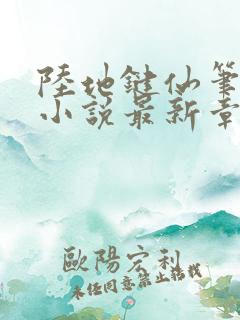 陸地鍵仙筆
小說最新章
歐陽宏利
未经同意禁止转载